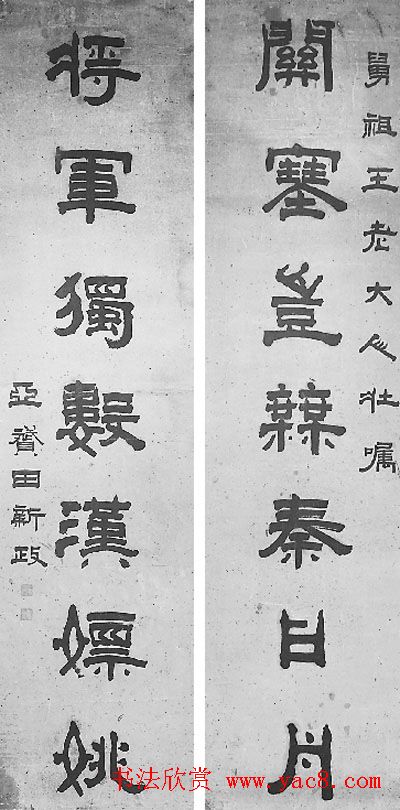 舅祖王老大人壯嘱
關塞豈秦日月
將軍獨數漢嫖姚
亞田新政
书法欣赏 www.yac8.com